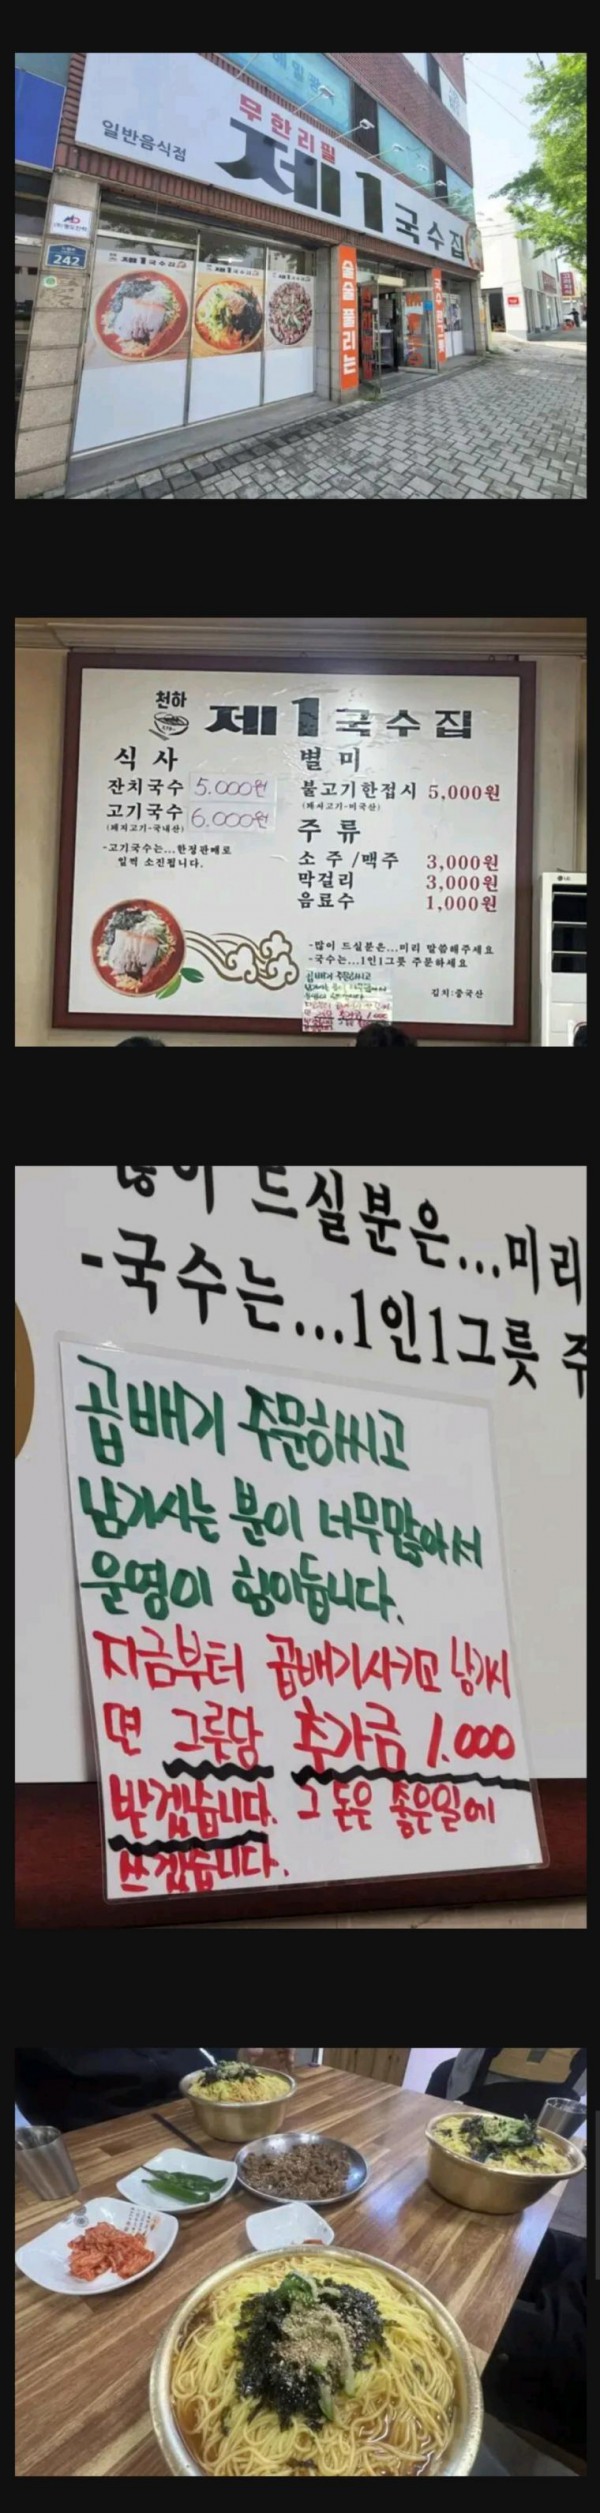 무한리필
일반음식점
제1국수집
242
제1국수집
제1국수집
제1국수집
술술풀리는
천하
제1국수집
식사
잔치국수 5.000원
고기국수 6.000원
(돼지고기-국내산)
-고기국수는...한정판매로
일찍 소진됩니다.
별미
불고기한접시 5,000원
(돼지고기-미국산)
주류
소주/맥주 3,000원
막걸리 3,000원
음료수 1,000원
-많이 드실분은...미리 말씀해주세요
-국수는...1인1그릇 주문하세요
김치:중국산
LG
많이 드실분은...미리
-국수는...1인1그릇 주
곱배기 주문하시고
남기시는 분이 너무많아서
운영이 힘이듭니다.
지금부터 곱배기시키고 남기시
면 그릇당 추가금 1.000
받겠습니다. 그 돈은 좋은일에
쓰겠습니다.